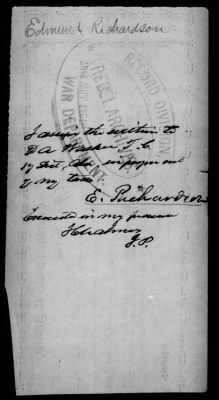 Edmund Richardson
RECORD DIVISION
REBEL ARCHIVES
WAR DEPARTMENT
I assign the within to
D A Walker T. C.
17 Dist, in payment
of my tax
E. Richardson
Executed in my presence
J.P.